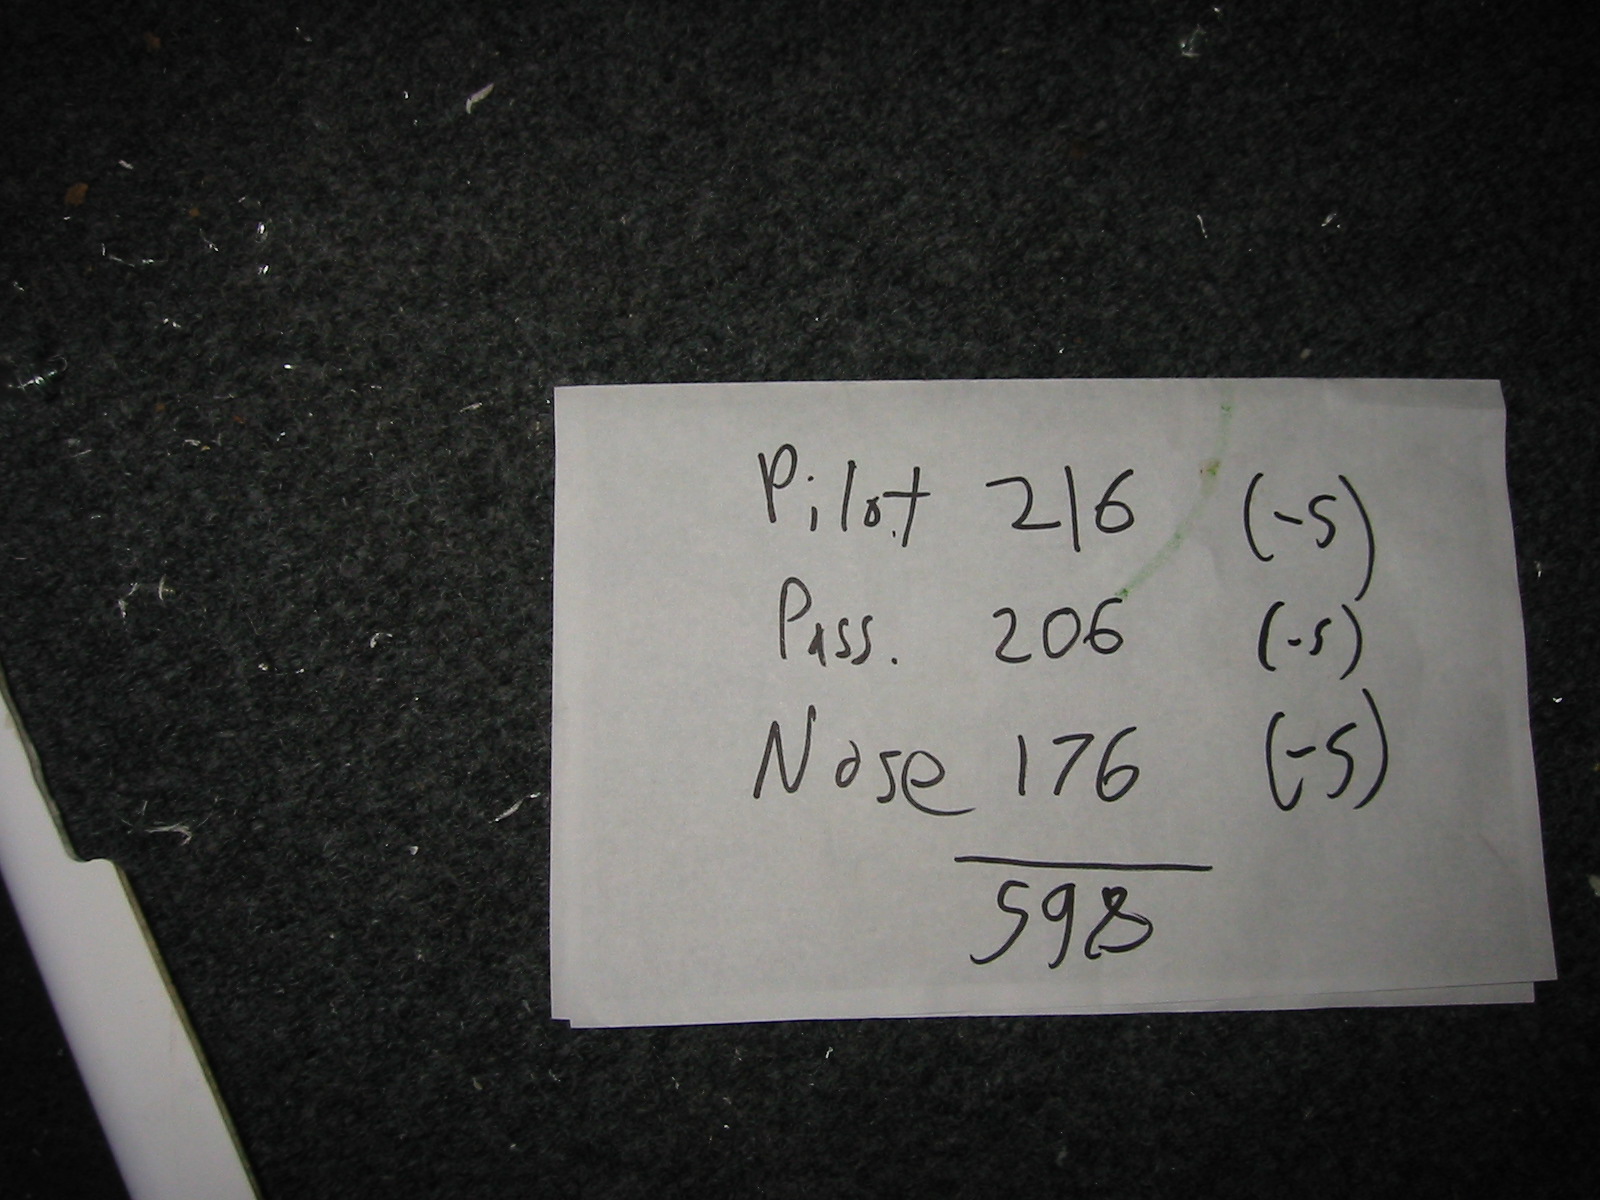 Pilot 216 (-5)
Pass. 206 (-5)
Nose 176 (-5)
598